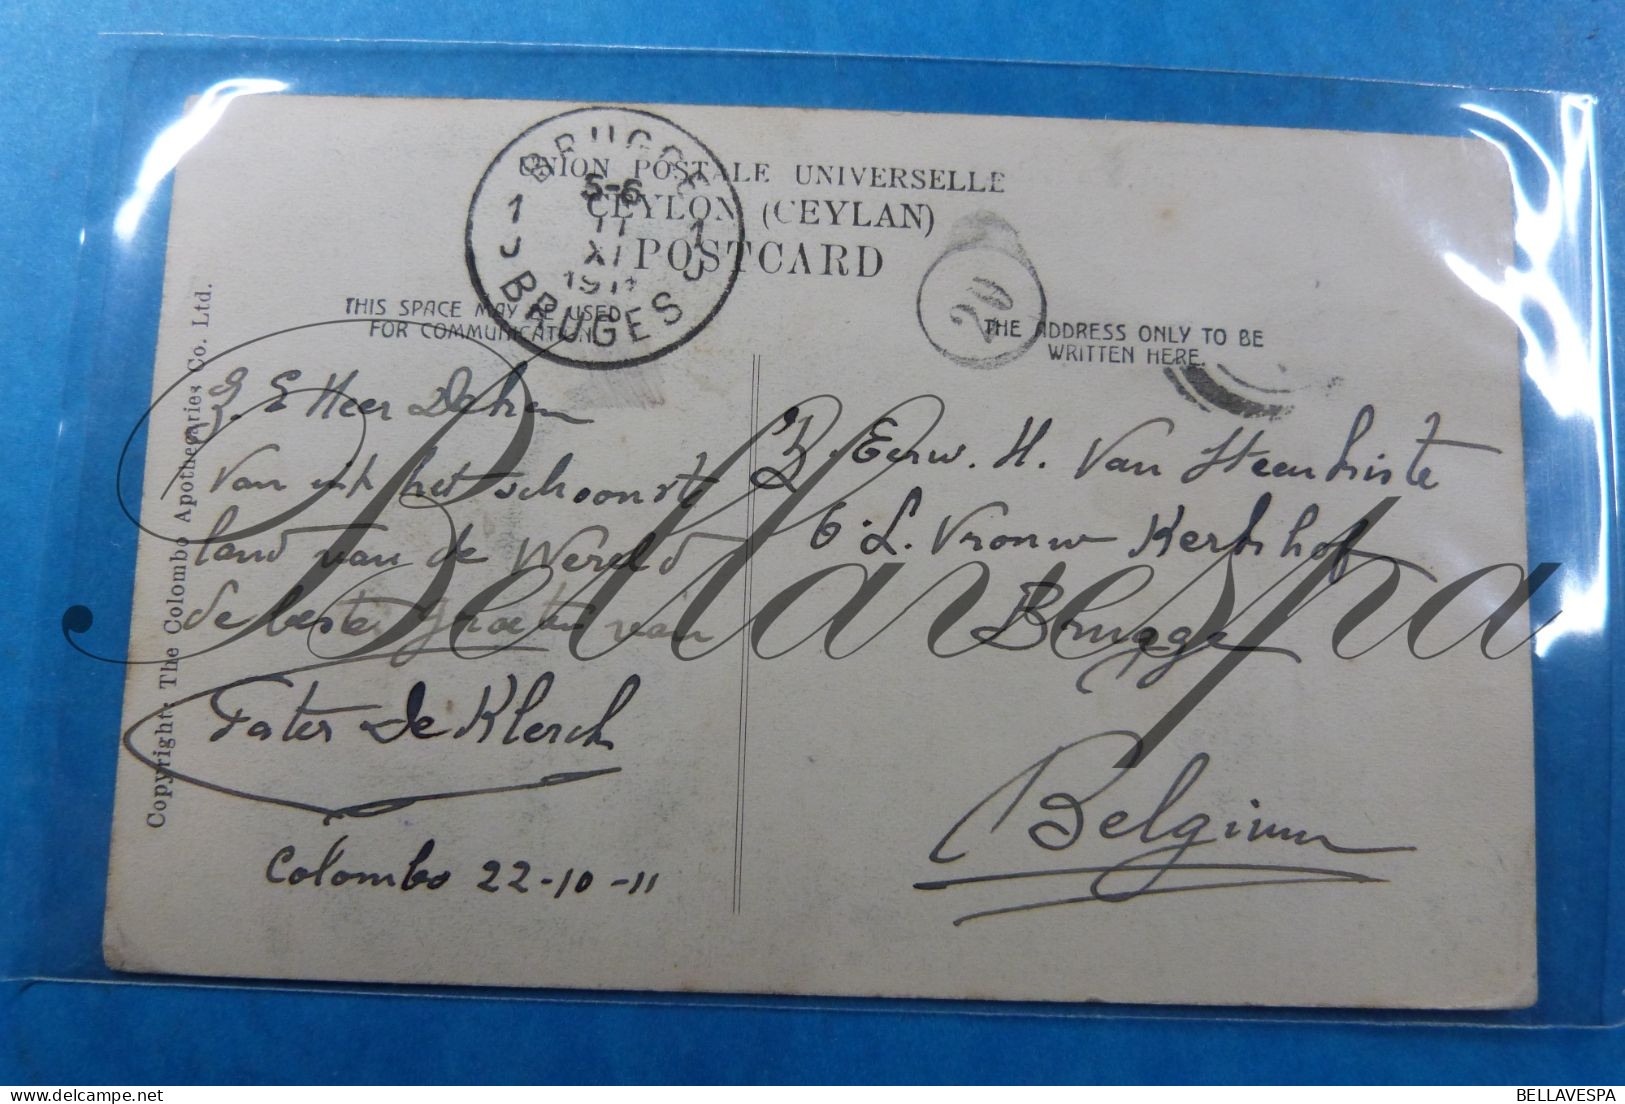 UNION POSTALE UNIVERSELLE
CEYLON (CEYLAN)
POSTCARD
BRUGGE
5-6
1 11 1
J XI J
1911
BRUGES
20
THIS SPACE MAY BE USED
FOR COMMUNICATION.
THE ADDRESS ONLY TO BE
WRITTEN HERE.
Copyright: The Colombo Apothecaries Co. Ltd.
Z. E Heer Deken
Van uit het schoonste
land van de Wereld
de beste groeten van
Pater De Klerck
Colombo 22-10-11
Z. Eerw. H. Van Steenkiste
6 L. Vrouw Kerkhof
Brugge
Belgium
Bellavespa
BELLAVESPA